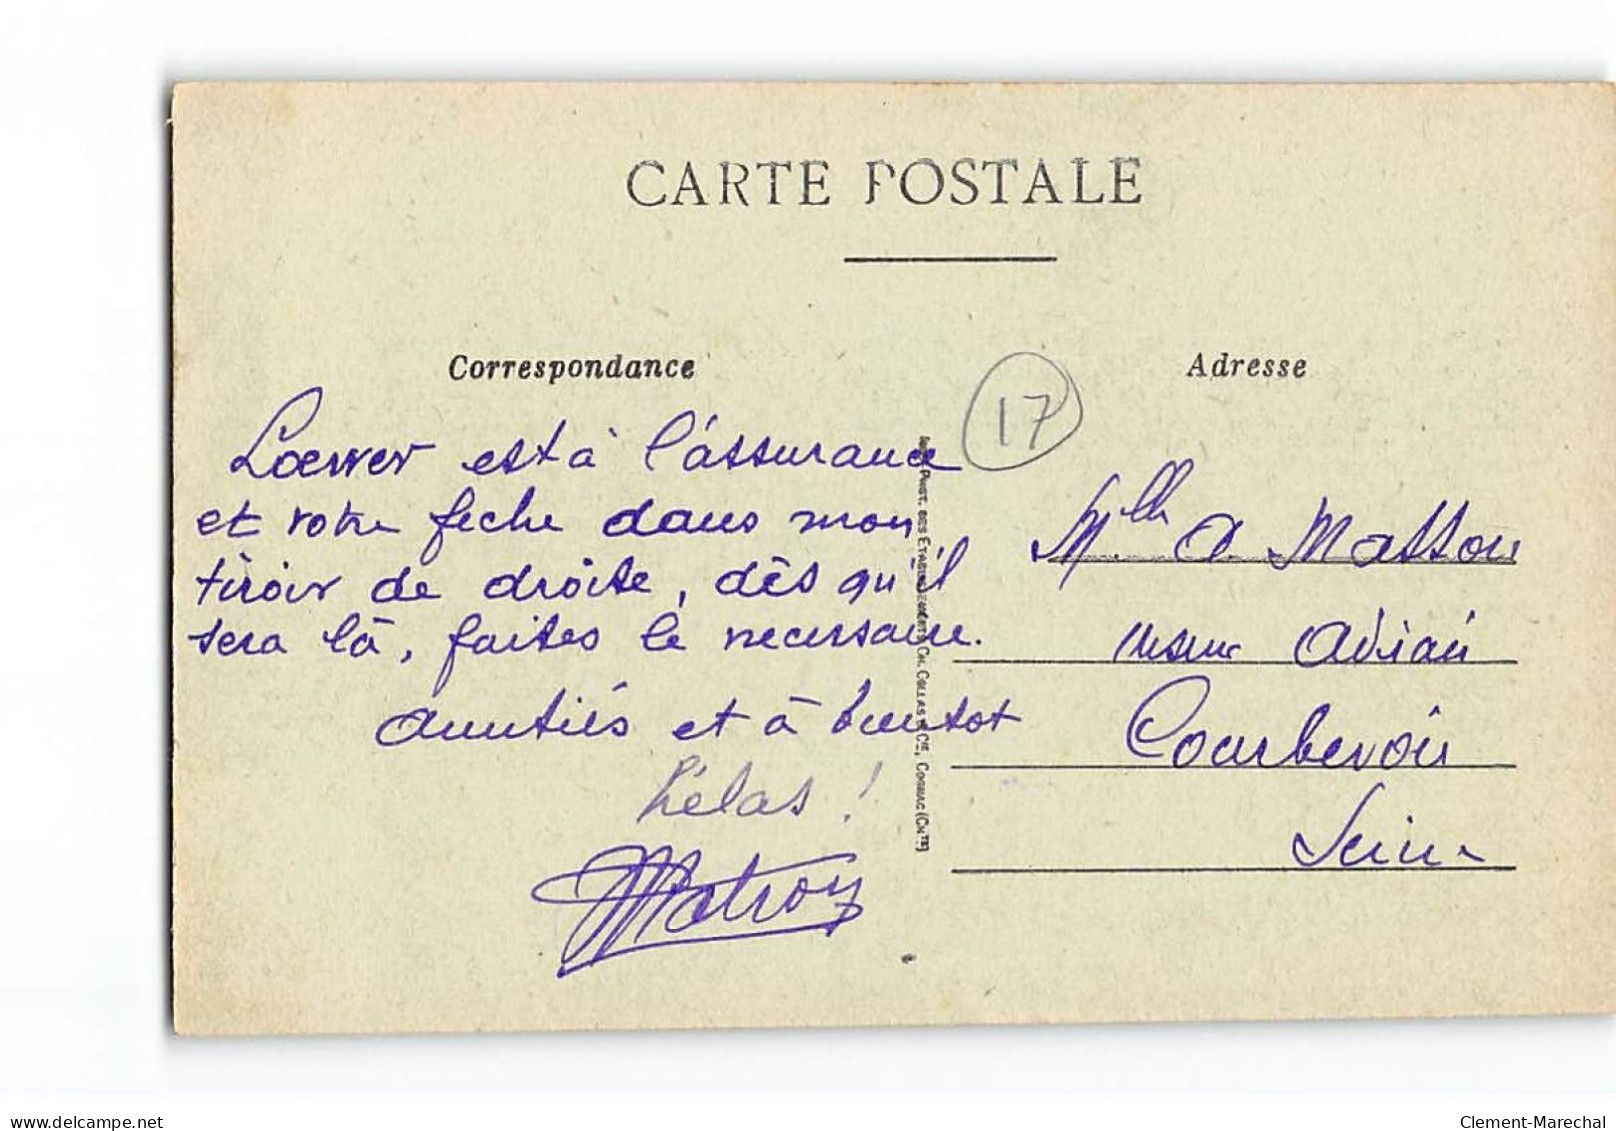 CARTE POSTALE
Correspondance
est à l'assurance
et votre fiche dans mon
tiroir de droite, dès qu'il
sera là, faites le necessaire.
Amitiés et à bientot
hélas !
Adresse
17
Mlle A Masson
usine Adrian
Courbevoie
Seine
Phot. des Etablissements Ch. Collas & Cie, Cognac (Chte)
www.delcampe.net
Clement-Marechal